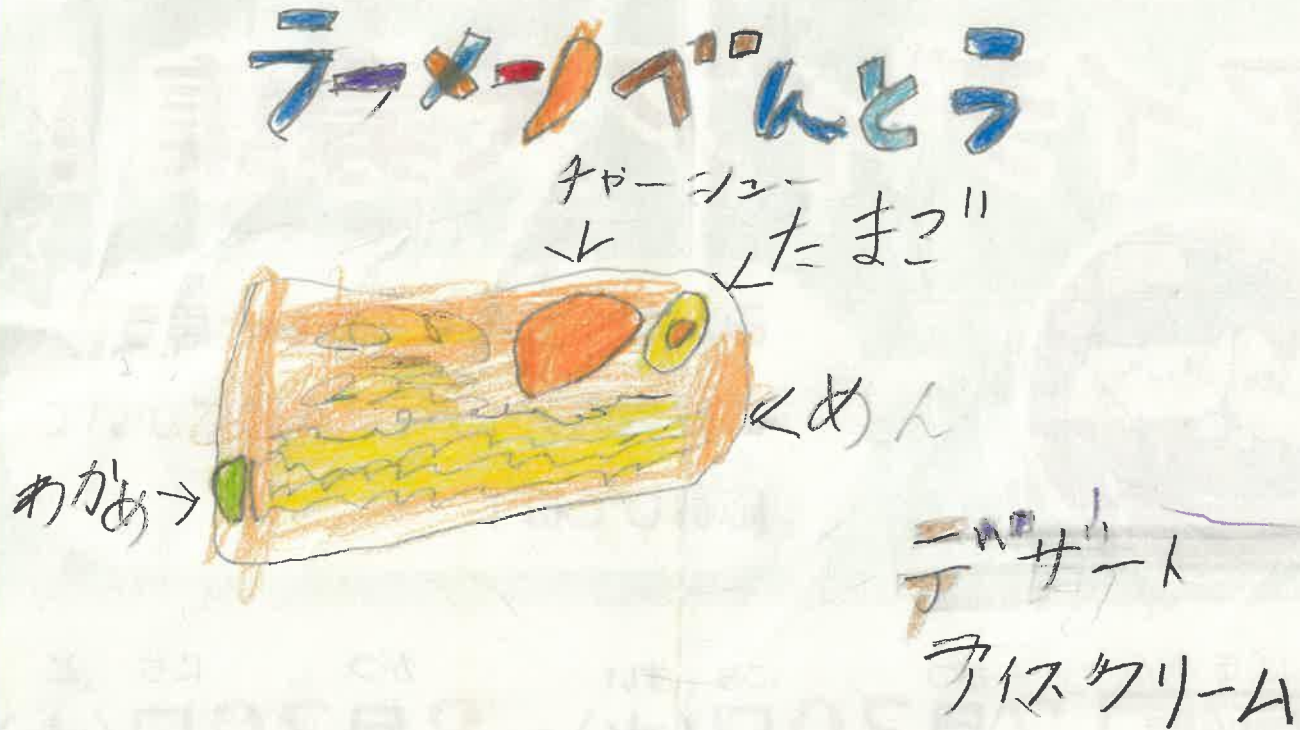 ラーメンべんとう
チャーシュー
たまご
めん
わかめ
デザート
アイスクリーム